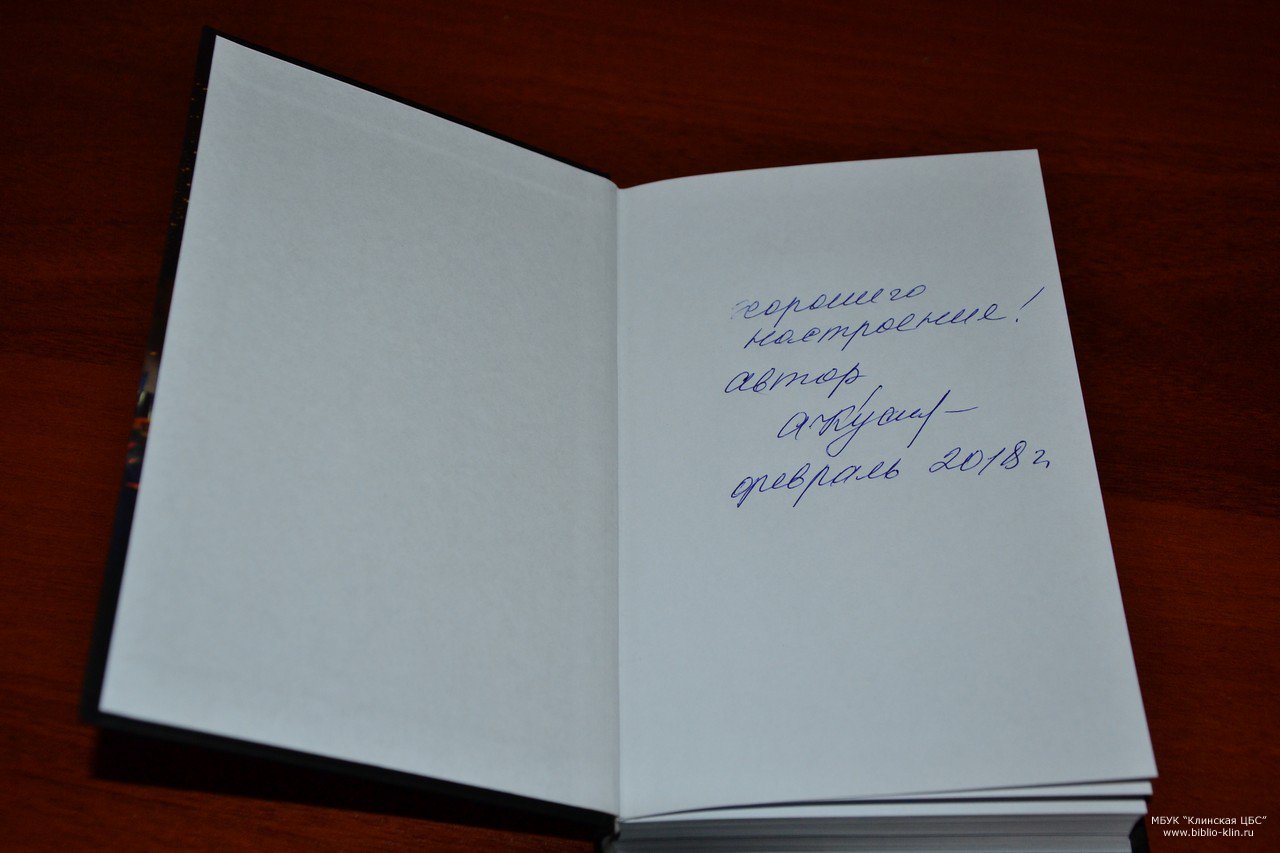 хорошего
настроения!
автор
февраль 2018 г.
МБУК "Клинская ЦБС"
www.biblio-klin.ru